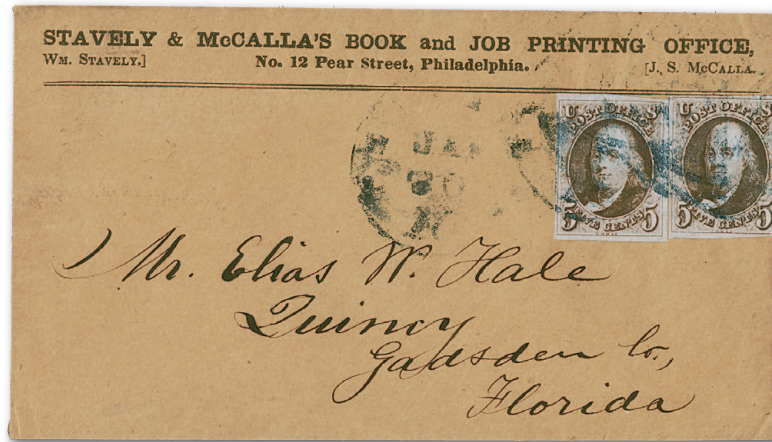 STAVELY & McCALLA'S BOOK and JOB PRINTING OFFICE,
WM. STAVELY.] No. 12 Pear Street, Philadelphia. [J. S. McCALLA.
JAN
30
U S U S
POST OFFICE POST OFFICE
5 FIVE CENTS 5 5 FIVE CENTS 5
Mr. Elias W. Hale
Quincy
Gadsden Co.,
Florida